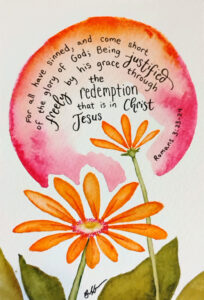 For all have sinned, and come short
of the glory of God; Being justified
freely by his grace through
the
redemption
that is in Christ
Jesus
Romans 3:23-24